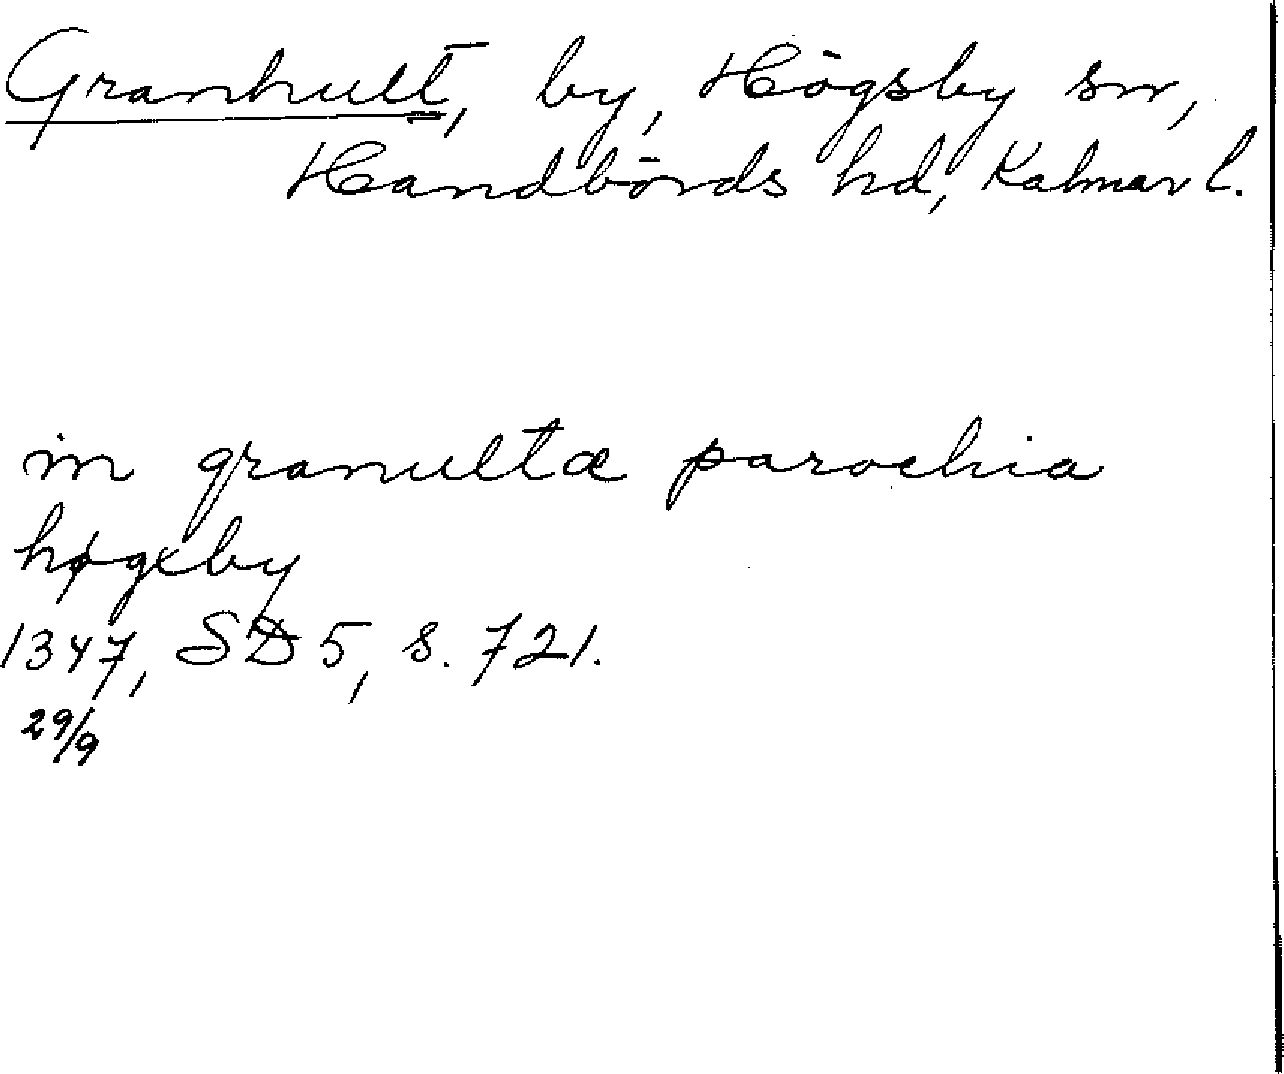 Granhult, by, Högsby sn,
Handbörds hd, Kalmar l.
in granultæ parochia
høgxby
1347, SD 5, s. 721.
29/9